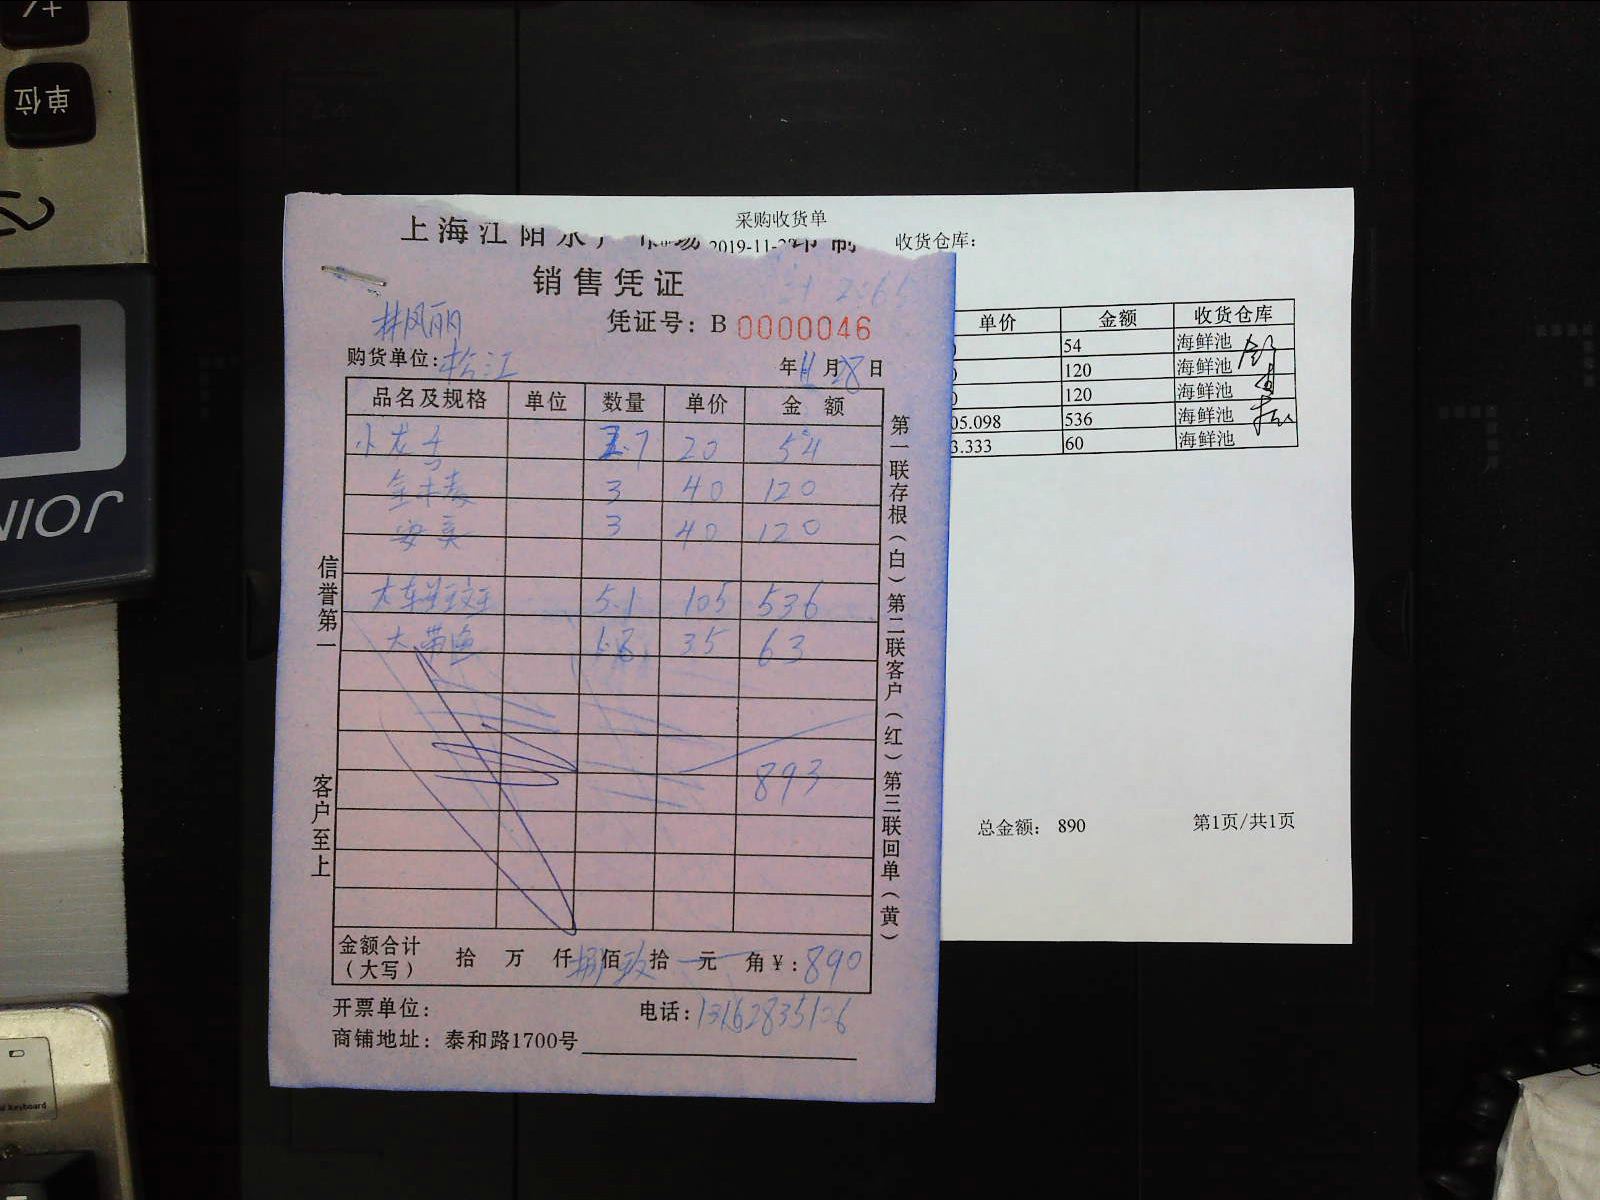 单位
JOIN
采购收货单
2019-11-2
收货仓库:
上海江阳水产市场 印制
销售凭证
凭证号: B 0000046
井风丽
购货单位: 松江
年 11 月 28 日
品名及规格 单位 数量 单价 金额
小龙 2.7 20 54
3 40 120
3 40 120
5.1 105 536
大带鱼 1.8 35 63
893
金额合计（大写） 拾 万 仟 捌 佰 玖 拾 元 角 ¥: 890
开票单位: 电话: 13162835106
商铺地址: 泰和路1700号
信誉第一
客户至上
第一联存根（白）第二联客户（红）第三联回单（黄）
单价 金额 收货仓库
54 海鲜池
120 海鲜池
120 海鲜池
05.098 536 海鲜池
3.333 60 海鲜池
总金额: 890 第1页/共1页